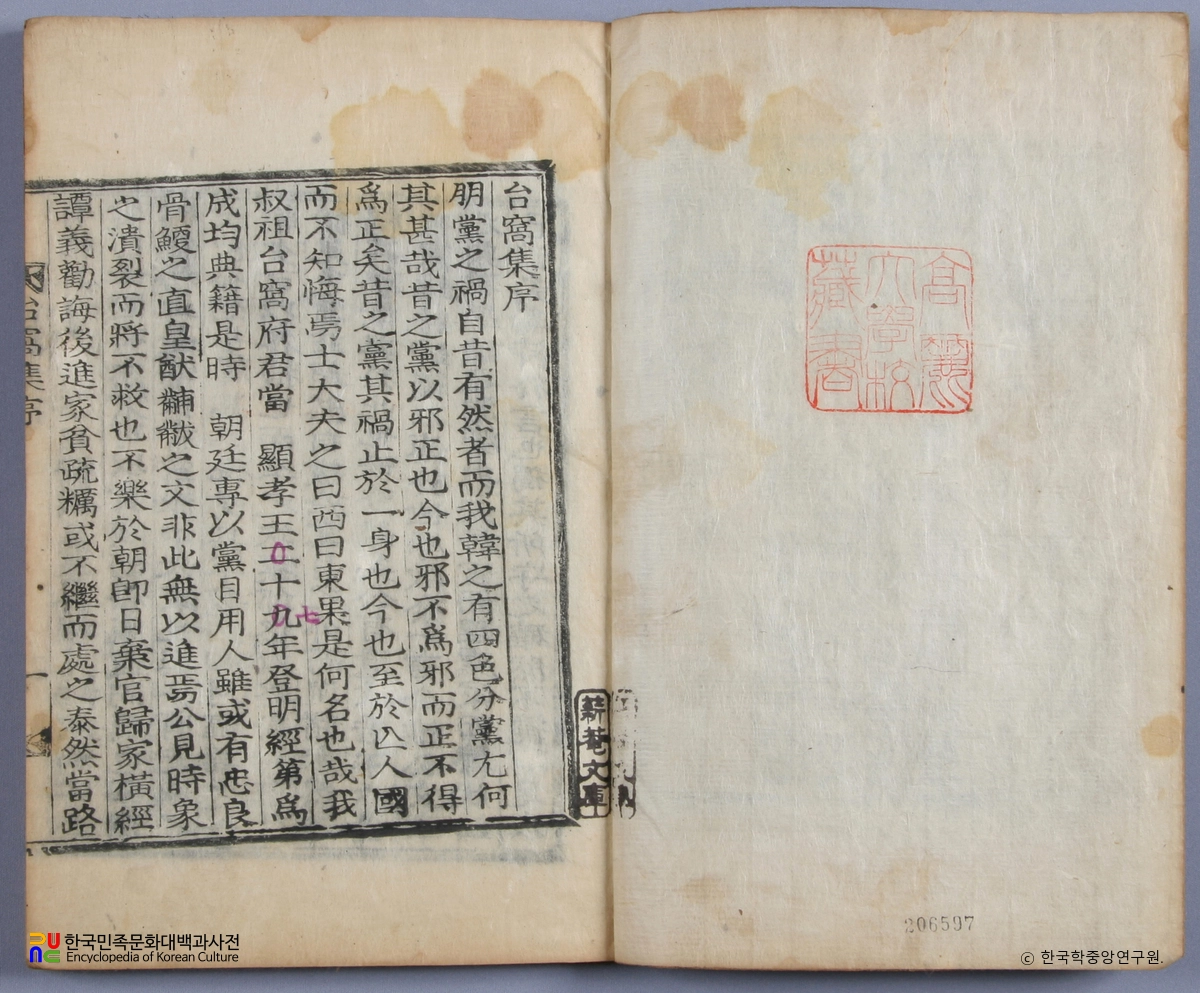 高麗
大學校
藏書
206597
薪菴文庫
台窩集序
朋黨之禍自昔有然者而我韓之有四色分黨尤何
其甚哉昔之黨以邪正也今也邪不爲邪而正不得
爲正矣昔之黨其禍止於一身也今也至於亾人國
而不知悔焉士大夫之曰西曰東果是何名也哉我
七
叔祖台窩府君當 顯孝王二十九年登明經第爲
成均典籍是時 朝廷專以黨目用人雖或有忠良
骨鯁之直皇猷黼黻之文非此無以進焉公見時象
之潰裂而將不救也不樂於朝卽日棄官歸家橫經
譚義勸誨後進家貧疏糲或不繼而處之泰然當路
台窩集序
一
한국민족문화대백과사전
Encyclopedia of Korean Culture
ⓒ 한국학중앙연구원.